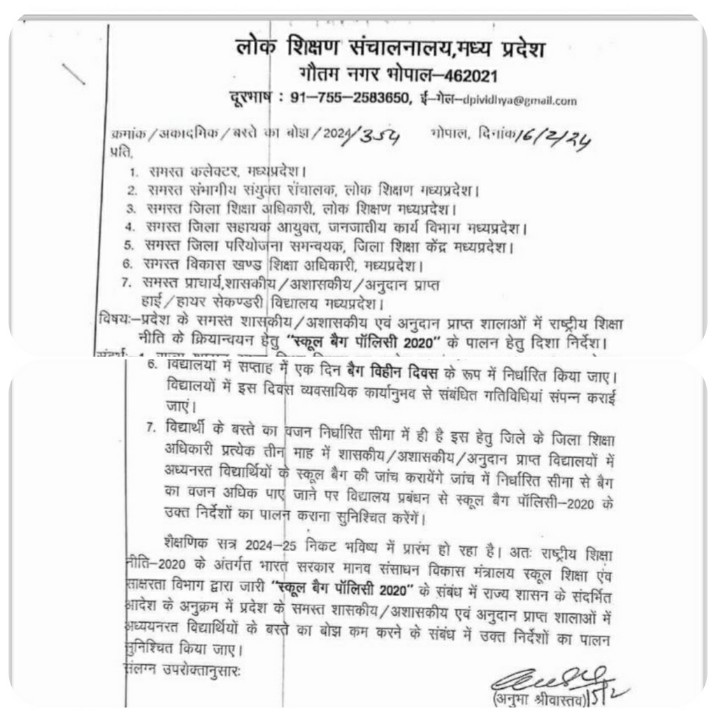 लोक शिक्षण संचालनालय,मध्य प्रदेश
गौतम नगर भोपाल–462021
दूरभाष : 91–755–2583650, ई–मेल–dpividhya@gmail.com
क्रमांक/अकादमिक/बस्ते का बोझ/2024/354 भोपाल, दिनांक 16/2/24
प्रति,
1. समस्त कलेक्टर, मध्यप्रदेश।
2. समस्त संभागीय संयुक्त संचालक, लोक शिक्षण मध्यप्रदेश।
3. समस्त जिला शिक्षा अधिकारी, लोक शिक्षण मध्यप्रदेश।
4. समस्त जिला सहायक आयुक्त, जनजातीय कार्य विभाग मध्यप्रदेश।
5. समस्त जिला परियोजना समन्वयक, जिला शिक्षा केंद्र मध्यप्रदेश।
6. समस्त विकास खण्ड शिक्षा अधिकारी, मध्यप्रदेश।
7. समस्त प्राचार्य,शासकीय/अशासकीय/अनुदान प्राप्त
हाई/हायर सेकण्डरी विद्यालय मध्यप्रदेश।
विषयः–प्रदेश के समस्त शासकीय/अशासकीय एवं अनुदान प्राप्त शालाओं में राष्ट्रीय शिक्षा
नीति के क्रियान्वयन हेतु “स्कूल बैग पॉलिसी 2020” के पालन हेतु दिशा निर्देश।
6. विद्यालयों में सप्ताह में एक दिन बैग विहीन दिवस के रूप में निर्धारित किया जाए।
विद्यालयों में इस दिवस व्यवसायिक कार्यानुभव से संबंधित गतिविधियां संपन्न कराई
जाएं।
7. विद्यार्थी के बस्ते का वजन निर्धारित सीमा में ही है इस हेतु जिले के जिला शिक्षा
अधिकारी प्रत्येक तीन माह में शासकीय/अशासकीय/अनुदान प्राप्त विद्यालयों में
अध्यनरत विद्यार्थियों के स्कूल बैग की जांच करायेंगे जांच में निर्धारित सीमा से बैग
का वजन अधिक पाए जाने पर विद्यालय प्रबंधन से स्कूल बैग पॉलिसी–2020 के
उक्त निर्देशों का पालन कराना सुनिश्चित करेंगें।
शैक्षणिक सत्र 2024–25 निकट भविष्य में प्रारंभ हो रहा है। अतः राष्ट्रीय शिक्षा
नीति–2020 के अंतर्गत भारत सरकार मानव संसाधन विकास मंत्रालय स्कूल शिक्षा एंव
साक्षरता विभाग द्वारा जारी “स्कूल बैग पॉलिसी 2020” के संबंध में राज्य शासन के संदर्भित
आदेश के अनुक्रम में प्रदेश के समस्त शासकीय/अशासकीय एवं अनुदान प्राप्त शालाओं में
अध्ययनरत विद्यार्थियों के बस्ते का बोझ कम करने के संबंध में उक्त निर्देशों का पालन
सुनिश्चित किया जाए।
संलग्न उपरोक्तानुसारः
15/2
(अनुभा श्रीवास्तव)